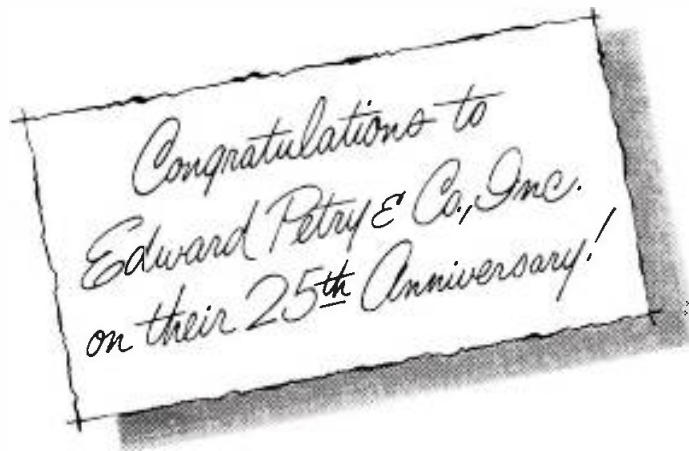 Congratulations to
Edward Petry & Co., Inc.
on their 25th Anniversary!